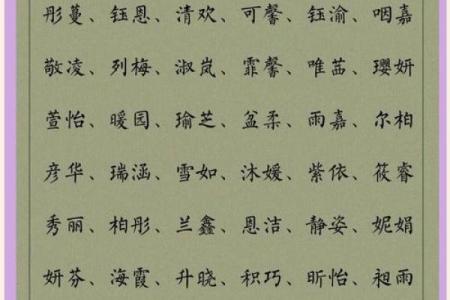 彤蔓、钰恩、清欢、可馨、钰渝、咽嘉
敬凌、列梅、淑岚、霏馨、唯茁、璎妍
萱怡、暖园、瑜芝、盆柔、雨嘉、尔柏
彦华、瑞涵、雪如、沐媛、紫依、筱睿
秀丽、柏彤、兰鑫、恩洁、静姿、妮娟
妍芬、海霞、升晓、积巧、昕怡、昶雨